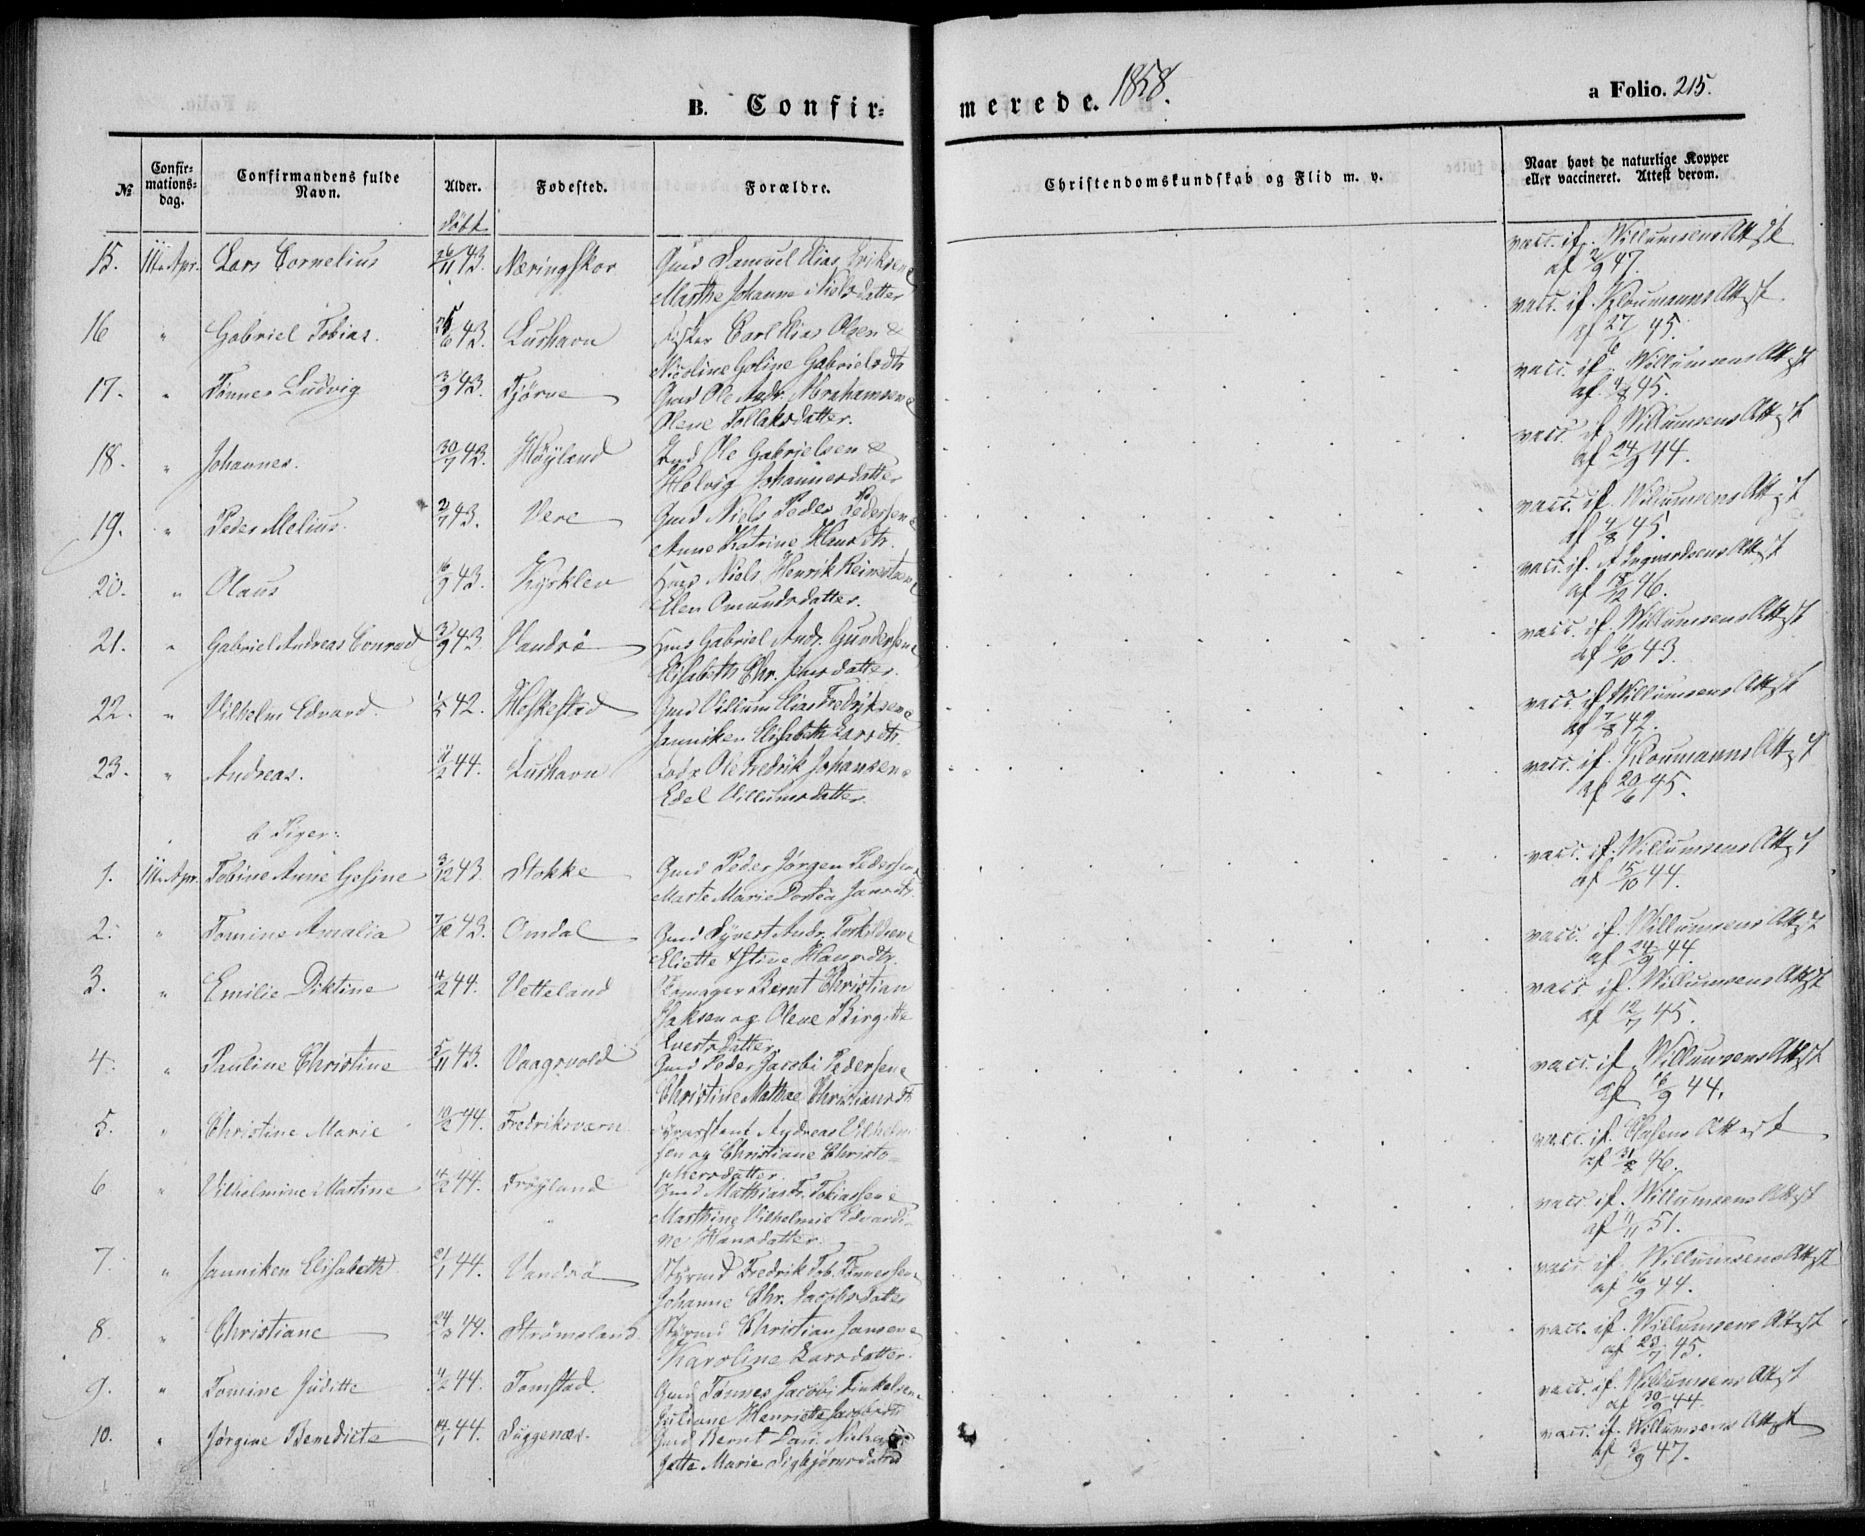 B. Confir-
merede. 1858.
a Folio. 215.
№
Confir-
mations-
dag.
Confirmandens fulde
Navn.
Alder.
Fødested.
Forældre.
Christendomskundskab og Flid m. v.
Naar havt de naturlige Kopper
eller vaccineret. Attest derom.
døbt
15. 11te Apr. Lars Cornelius 26/11 43. Næringskov Gmd Samuel Elias Eriksen &
Marthe Johanne Nielsdatter
vacc. if. Willumsens Attest
af 2/9 47.
16 " Gabriel Tobias. 43. Lushavn Fisker Carl Elias Olsen &
Nicoline Goline Gabrielsdtr
vacc. if. Kloumanns Attest
af 27/6 45.
17. " Tønnes Ludvig 3/9 43. Tjørve Gmd Ole Andr. Abrahamsen &
Olene Tollaksdatter.
vacc. if. Willumsens Attest
af 4/8 45.
18. " Johannes. 30/7 43. Høyland Gmd Ole Gabrielsen &
Helvig Johannesdatter
vacc. if. Willumsens Attest
af 24/9 44.
19. " Peder Melius. 2/7 43. Vere Gmd Niels Peder Pedersen &
Anne Katrine Hansdtr.
vacc. if. Willumsens Attest
af 4/8 45.
20. " Olaus 43. Kjørklev Niels Henrik Reinertsen &
Elen Omundsdatter.
vacc. if. Attest
af 46.
21. " Gabriel Andreas Conrad 3/9 43 Vandsø Gabriel Andr. Gundersen &
Elisabeth Chr. Jensdatter.
vacc. if. Willumsens Attest
af 6/10 43.
22. " Vilhelm Edvard. 1/5 42. Heskestad Gmd Villum Elias Fredriksen &
Janniken Elisabeth Larsdtr.
vacc. if. Willumsens Attest
af 7/8 42.
23. " Andreas. 11/2 44. Lushavn Lods Ole Fredrik Johansen &
Edel Villumsdatter
vacc. if. Kloumanns Attest
af 20/6 45.
b Piger:
1. 11te Apr. Tobine Anne Gesine 3/12 43 Stokke Gmd Peder Jørgen Pedersen &
Marte Marie Dortea Jansdtr.
vacc. if. Willumsens Attest
af 15/10 44.
2. " Tomine Amalia 43. Omdal Gmd Syvert Andr. Torkildsen &
Eliette Hansdtr.
vacc. if. Willumsens Attest
af 24/9 44.
3. " Emilie Diktine 4/2 44. Vetteland Bernt Christian
Isaksen og Olene Birgitte
Evertsdatter
vacc. if. Willumsens Attest
af 12/7 45.
4. " Pauline Christine 5/11 43. Vaagsvold Gmd Peder Jacobi Pedersen &
Christine Mathea Christiansdtr
vacc. if. Willumsens Attest
af 16/9 44.
5. " Christine Marie 10/2 44. Fredriksværn Andreas Vilhelm-
sen og Christiane Christo-
phersdatter
vacc. if. Attest
af 46.
6 " Vilhelmine Martine 4/2 44. Frøyland Gmd Mathias Fr. Tobiassen &
Marthine Vilhelmine Edvardi-
ne Hansdatter.
vacc. if. Willumsens Attest
af 51.
7. " Janniken Elisabeth 21/1 44. Vandsø Styrmd Fredrik Tob. Tønnessen &
Johanne Chr. Jacobsdatter
vacc. if. Willumsens Attest
af 16/9 44.
8. " Christiane 24/3 44. Strømsland Styrmd Christian Jansen &
Karoline Larsdatter.
vacc. if. Willumsens Attest
af 23/7 45.
9. " Tomine Juditte 4/2 44. Tomstad. Gmd Tønnes Jacobi Tinkelsen &
Juliane Henriette Jacobsdtr
vacc. if. Willumsens Attest
af 30/9 44.
10. " Jørgine Benedicte 14/1 44. Siggenæs. Gmd Bernt Lau.
Jette Marie Sigbjørnsdatter
vacc. if. Willumsens Attest
af 3/9 47.